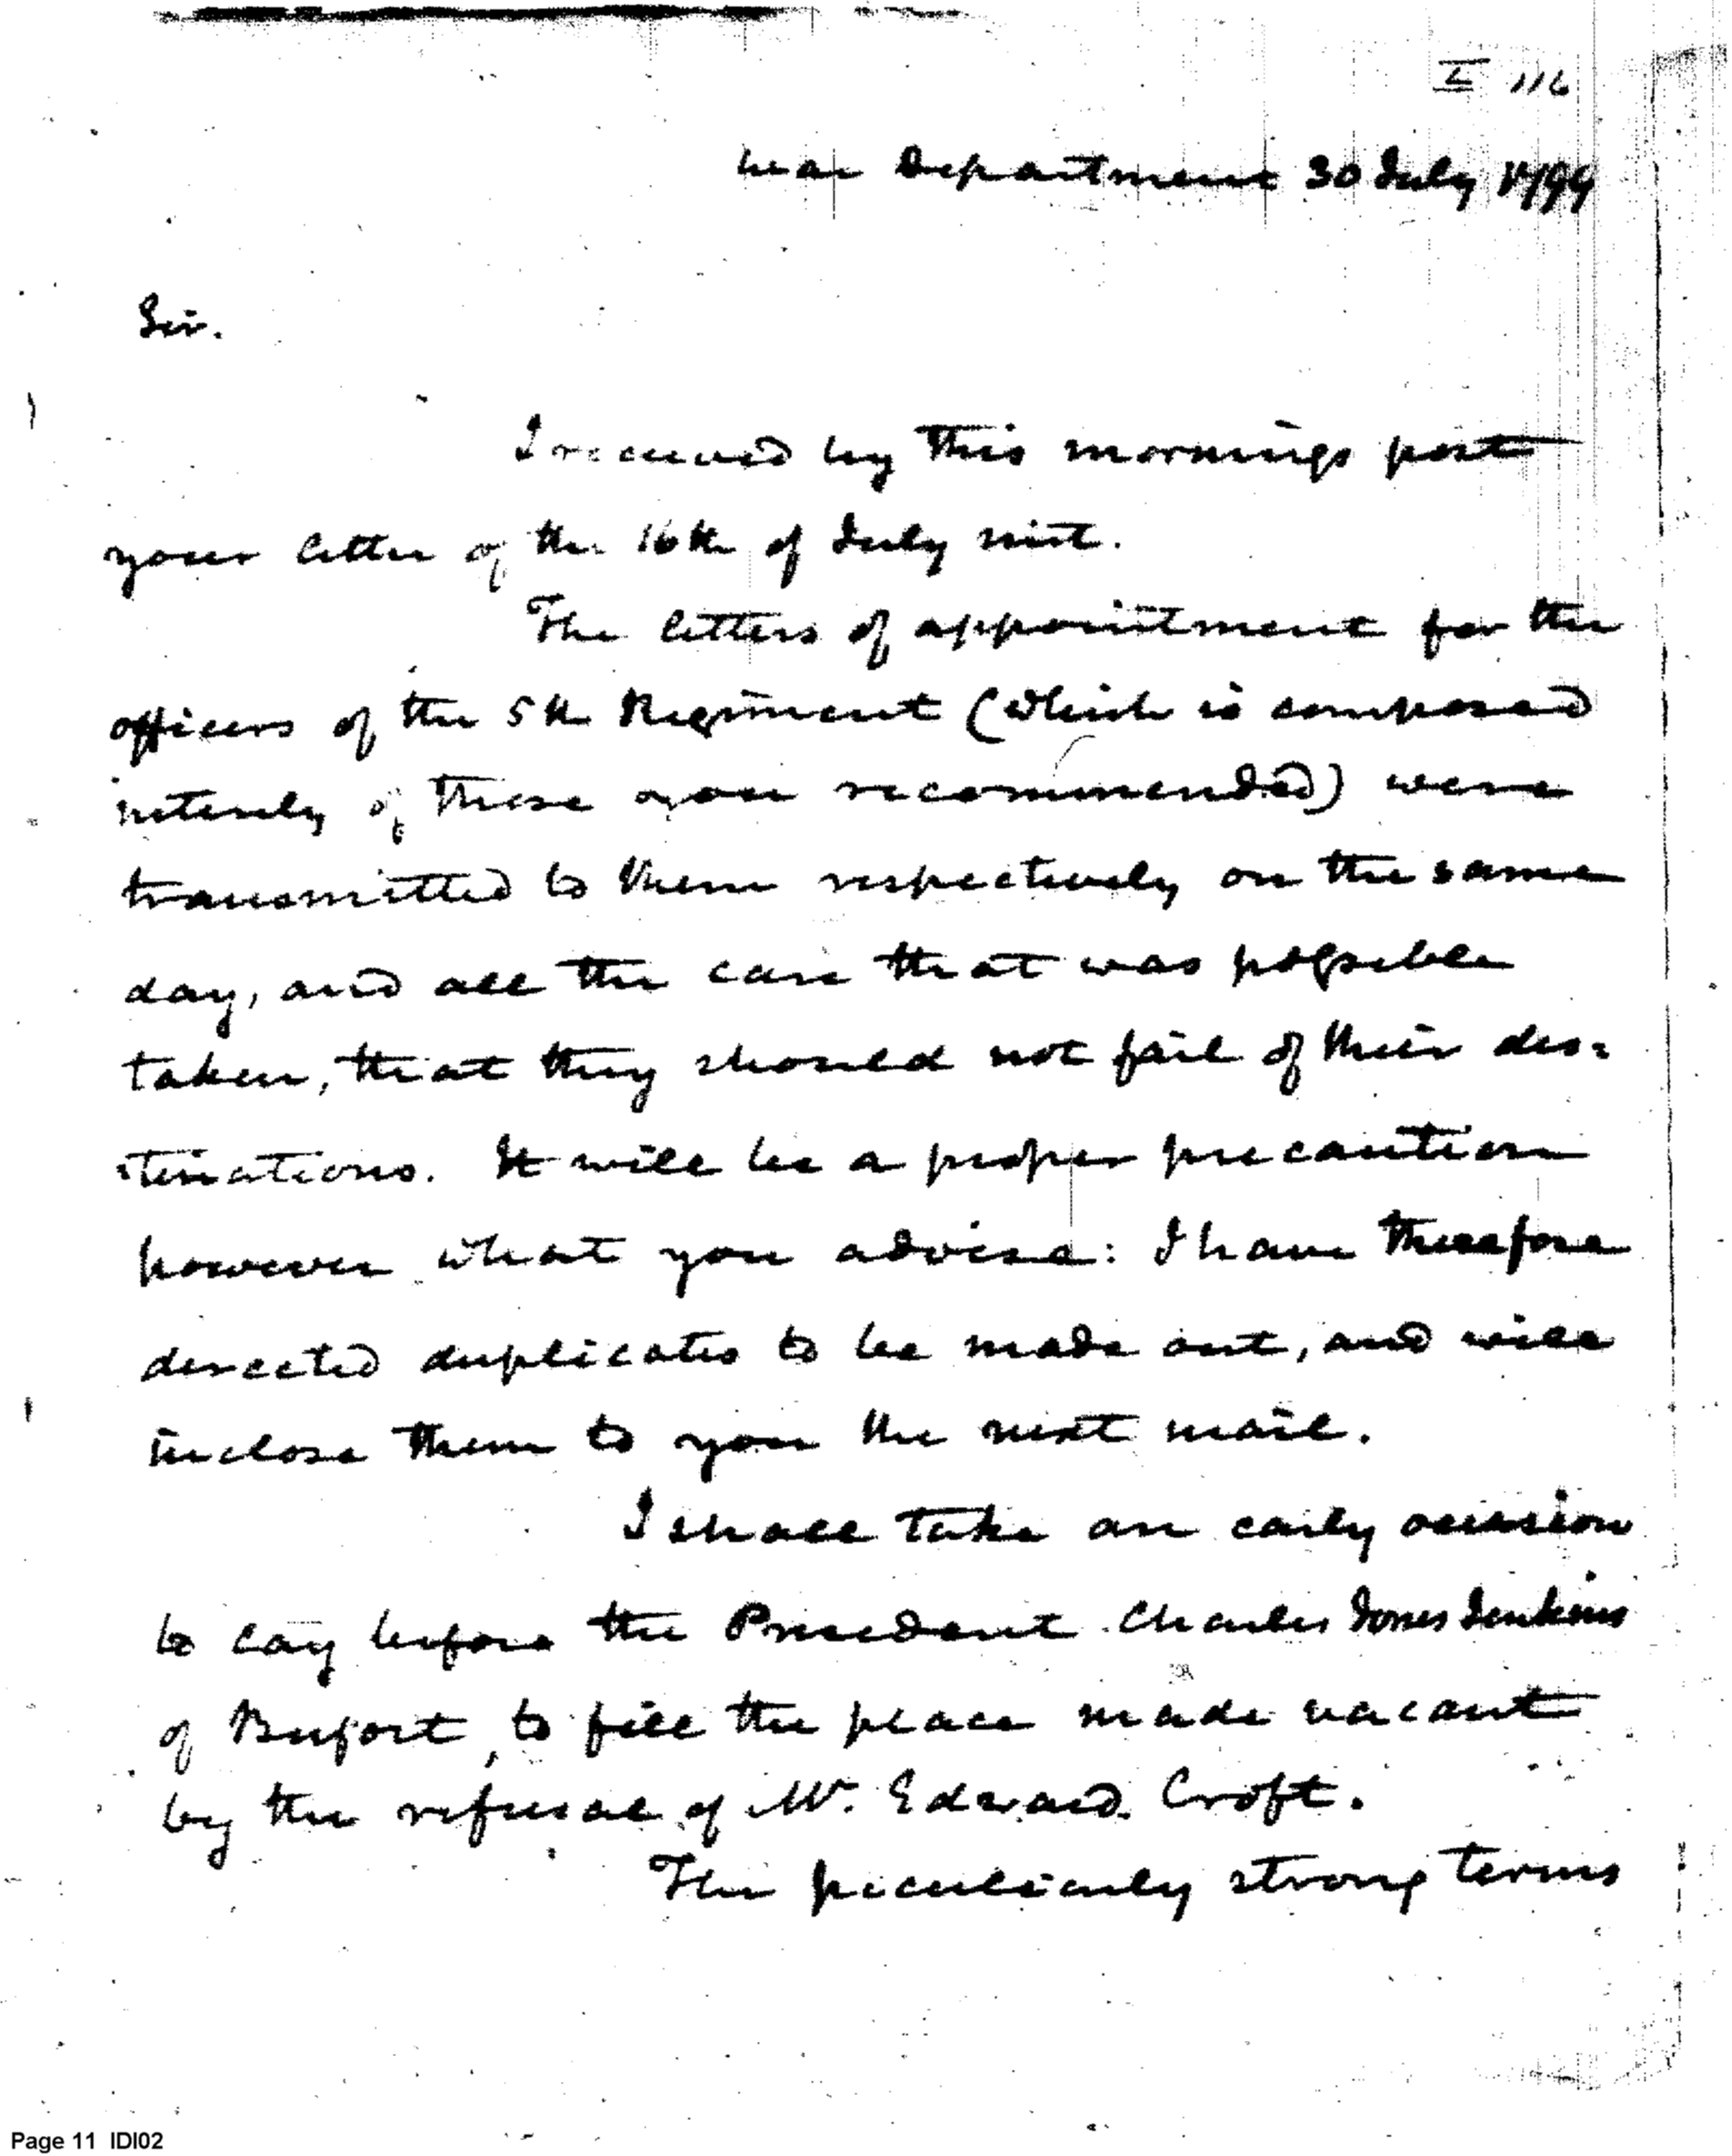 I 116
War Department 30 July 1799
Sir.
I received by this mornings post
your letter of the 16th of July inst.
The letters of appointment for the
officers of the 5th Regiment (which is composed
intirely of those you recommended) were
transmitted to them respectively on the same
day, and all the care that was possible
taken, that they should not fail of their des=
=tinations. It will be a proper precaution
however what you advise: I have therefore
directed duplicates to be made out, and will
inclose them to you the next mail.
I shall take an early occasion
to lay before the President Charles Jones Jenkins
of Bufort, to fill the place made vacant
by the refusal of Mr. Edward Croft.
The peculiarly strong terms
Page 11 IDI02